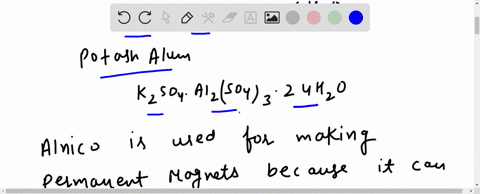 Potash Alum
K₂SO₄.Al₂(SO₄)₃.24H₂O
Alnico is used for making
permanent Magnets because it can